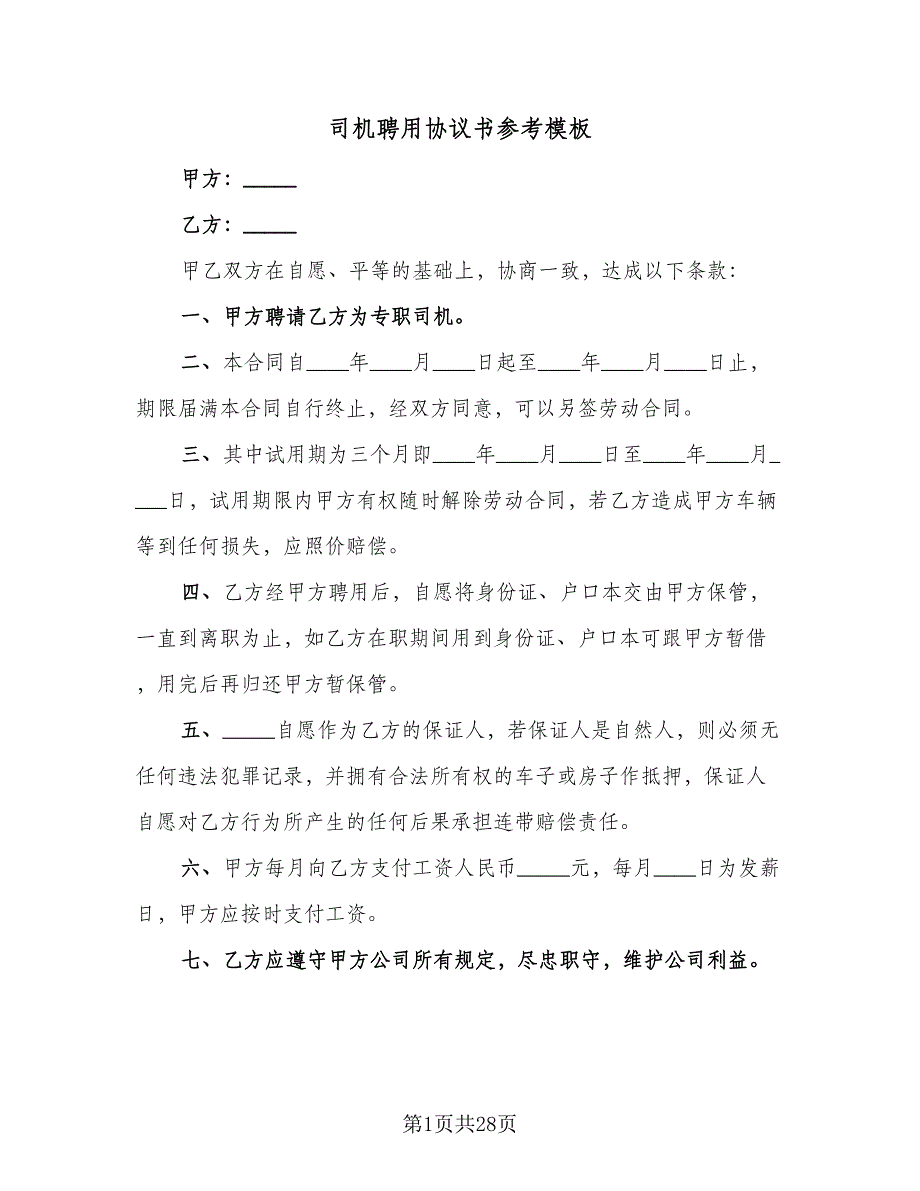 司机聘用协议书参考模板
甲方：_____
乙方：_____
甲乙双方在自愿、平等的基础上，协商一致，达成以下条款：
一、甲方聘请乙方为专职司机。
二、本合同自____年____月____日起至____年____月____日止，
期限届满本合同自行终止，经双方同意，可以另签劳动合同。
三、其中试用期为三个月即____年____月____日至____年____月_
___日，试用期限内甲方有权随时解除劳动合同，若乙方造成甲方车辆
等到任何损失，应照价赔偿。
四、乙方经甲方聘用后，自愿将身份证、户口本交由甲方保管，
一直到离职为止，如乙方在职期间用到身份证、户口本可跟甲方暂借
，用完后再归还甲方暂保管。
五、_____自愿作为乙方的保证人，若保证人是自然人，则必须无
任何违法犯罪记录，并拥有合法所有权的车子或房子作抵押，保证人
自愿对乙方行为所产生的任何后果承担连带赔偿责任。
六、甲方每月向乙方支付工资人民币_____元，每月____日为发薪
日，甲方应按时支付工资。
七、乙方应遵守甲方公司所有规定，尽忠职守，维护公司利益。
第1页共28页